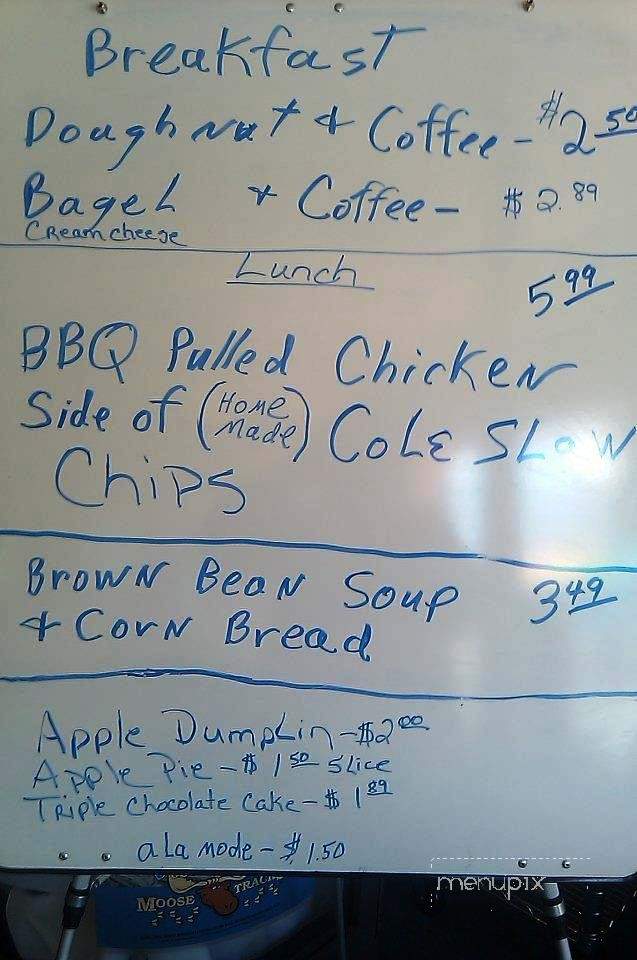 Breakfast
Doughnut & Coffee - $2.50
Bagel & Coffee - $2.89
Cream cheese
Lunch
5.99
BBQ Pulled Chicken
Side of (Home Made) Cole Slow
Chips
Brown Bean Soup 3.49
& Corn Bread
Apple Dumplin - $2.00
Apple Pie - $1.50 Slice
Triple Chocolate Cake - $1.89
a La mode - $1.50
menupix
MOOSE TRACKS